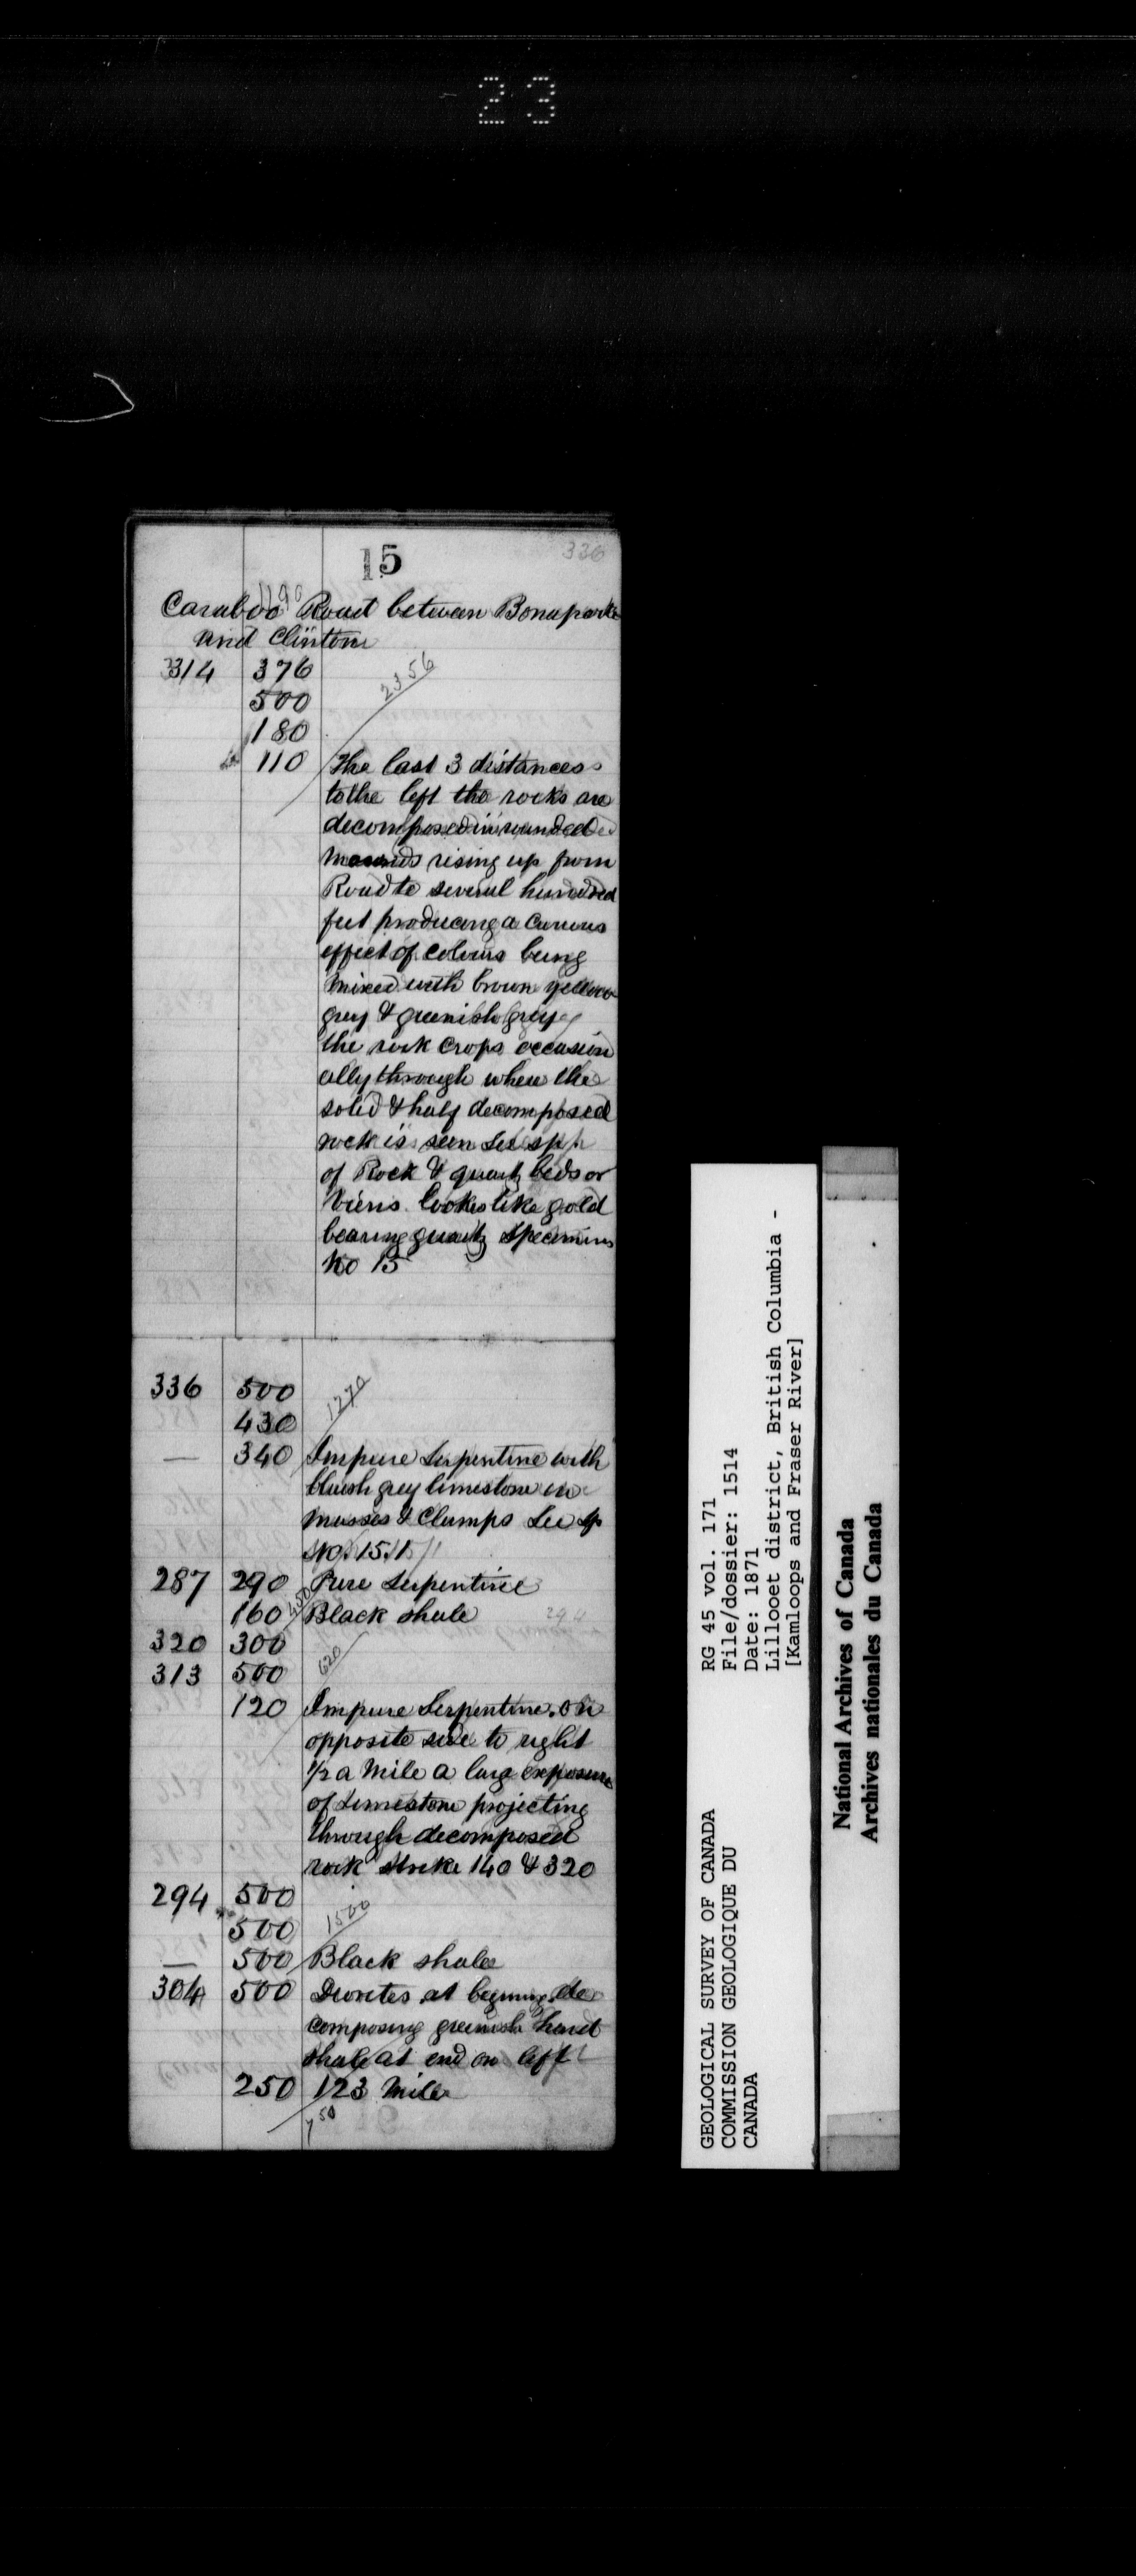 23
15
336
1190
Caraboo Road between Bonaparte
and Clinton
314 376
2356
500
180
110 The last 3 distances
to the left the rocks are
decomposed in rounded
mounds rising up from
Road to several hundred
feet producing a curious
effect of colours being
mixed with brown yellow
grey & greenish grey
the rock crops occasion
ally through where the
solid & half decomposed
rock is seen See sp
of Rock & quartz beds or
Viens lookes like gold
bearing quartz Specimins
No 15
336 500
1270
430
— 340 Impure Serpentine with
bluish grey limestone in
masses & Clumps See Sp
No. 15.1
287 290 Pure Serpentine
450
160 Black shale
294
320 300
620
313 500
120 Impure Serpentine. on
opposite side to right
1/2 a Mile a larg exposure
of Limestone projecting
through decomposed
rock strike 140 & 320
294 500
1500
500
— 500 Black shale
304 500 Diorites at begining de
composing greenish hard
shale at end on left
250 123 Mile
750
GEOLOGICAL SURVEY OF CANADA
COMMISSION GEOLOGIQUE DU
CANADA
RG 45 vol. 171
File/dossier: 1514
Date: 1871
Lillooet district, British Columbia -
[Kamloops and Fraser River]
National Archives of Canada
Archives nationales du Canada